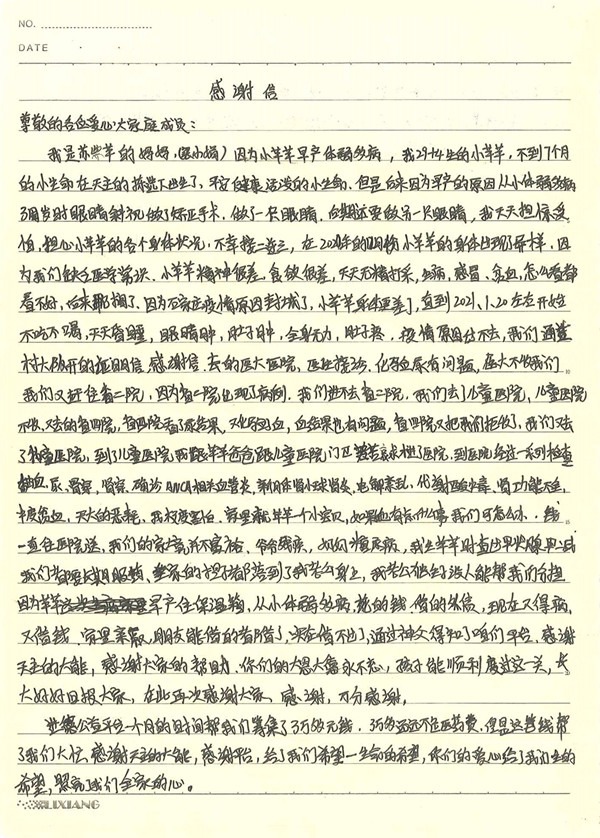 NO.
DATE
感谢信
尊敬的各位爱心大家庭成员：
我是苏 羊的妈妈，因为小羊羊早产体弱多病，我29+4生的小羊羊，不到7个月
的小生命在天主的拣选下出生了，平安健康活泼的小生命。但是后来因为早产的原因从小体弱多病
3周岁时眼睛斜视做了矫正手术，做了一只眼睛，后期还要做另一只眼睛，我天天担惊受
怕，担心小羊羊的各个身体状况，不幸接二连三，在20 年的 小羊羊的身体出现了异样，因
为我们缺乏医学常识，小羊羊精神很差，食欲很差，天天无精打采，生病，感冒，贫血，怎么看都
看不好，后来 ，因为石家庄疫情原因封城了，小羊羊身体更差了，直到2021.1.20左右开始
不吃不喝，天天昏睡，眼睛肿，肚子肿，全身无力，肚子疼，疫情原因出不去，我们通过
村大队开的证明信，感谢信，去的医大医院，医生接诊，化验血尿有问题，医大不收我们
我们又赶往省二院，因为省二院出现了病例，我们进不去省二院，我们去了儿童医院，儿童医院
不收，又去的省四院，省四院看了尿结果，又化验血，血结果也有问题，省四院又把我们拒收了，我们又去
了儿童医院，到了儿童医院我跟羊羊爸爸跟儿童医院门卫 了医院，到医院经过一系列检查
抽血，尿，胃穿，肾穿，确诊ANCA相关血管炎，新月体肾小球肾炎，电解紊乱，代谢性酸中毒，肾功能不全，
中度贫血，天大的恶耗，我快疯了，家里就羊羊一个小宝贝，如果她有点什么事我们可怎么办，钱
一直往医院送，我们的家境并不富裕，爷爷残疾，奶奶糖尿病，我生羊羊时查出甲状腺
我们都要长期服药，全家的担子都落到了我老公身上，我老公他 没人能帮我们分担
因为羊羊早产住保温箱，从小体弱多病，花的钱，借的外债，现在又得病，
又借钱，家里亲戚，朋友能借的都借了，实在借不出了，通过神父得知了咱们平台，感谢
天主的大能，感谢大家的帮助，你们的大恩大德永不忘，孩子能顺利度过这一关，长
大好好回报大家，在此再次感谢大家，感谢，万分感谢。
进德公益平台一个月的时间帮我们筹集了3万多元钱，3万多远远不住医药费，但是这笔钱帮
了我们大忙，感谢天主的大能，感谢平台，给了我们希望一生命的希望，你们的爱心给了我们生的
希望，照亮了我们全家的心。
LIXIANG